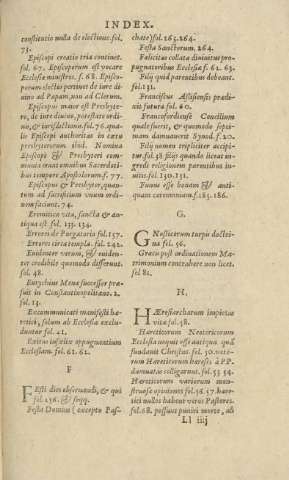 INDEX.
constitutio nulla de electione.fol.
73.
Episcopi creatio tria continet.
fol. 67. Episcoporum est vocare
Ecclesiæ ministros. f. 68. Episco-
porum electio pertinet de iure di-
uino ad Papam, non ad Clerum.
Episcopus maior est Presbyte-
ro, de iure diuino, potestate ordi-
nis, & iurisdictionis. fol. 76. qua-
Episcopi authoritas in cœtu
presbyterorum ibid. Nomina
Episcopi & Presbyteri com-
munia erant omnibus Sacerdoti-
bus tempore Apostolorum. f. 77.
Episcopus & Presbyter, quan-
tum ad susceptium vnum ordi-
nem faciunt. 74.
Eremitica vita, sancta & an-
tiqua est fol. 133. 134.
Errores de Purgatorio fol. 157.
Errores circa templa. fol. 242.
Euidenter verum, & euiden-
ter credibile quomodo differunt.
fol. 48.
Eutychius Menæ successor præ-
fuit in Constantinopolitano. 2.
fol. 15.
Excommunicati manifesti hæ-
retici, solum ab Ecclesia exclu-
duntur fol. 41.
Exitus infœlix oppugnantium
Ecclesiam. fol. 61. 62.
F
FEsti dies obseruandi, & qui
fol. 256. & seqq.
Festa Domini (excepto Pas-
chate) fol. 263. 264.
Festa Sanctorum. 264.
Felicitas collata diuinitus pro-
pugnatoribus Ecclesiæ f. 62. 63.
Filij quid parentibus debeant.
fol. 131.
Franciscus Assisiensis prædi-
uis futura fol. 60.
Francofordiense Concilium
quale fuerit, & quomodo septi-
mam damnauerit Synod. f. 20.
Filij nomen tripliciter accipi-
tur fol. 58 filijs quando liceat in-
gredi religionem parentibus in-
uitis. fol. 130. 131.
Fumus esse bonam & anti-
quam ceremoniam. f. 185. 186.
G.
GNosticorum turpis doctri-
na fol. 56.
Græcis post ordinationem Ma-
trimonium contrahere non licet.
fol 81.
H.
HÆresiarcharum impietas
vitæ fol. 58.
Hæreticorum Neotericorum
Ecclesia nequit esse antiqua quã
fundauit Christus. fol. 50. vete-
rum Hæreticorum hæreses à PP.
damnatæ colliguntur. fol. 53. 54.
Hæreticorum variorum mon-
struosæ opiniones fol. 56. 57. hære-
tici nullos habent veros Pastores.
fol. 68. possunt puniri morte, ab
Ll iiij